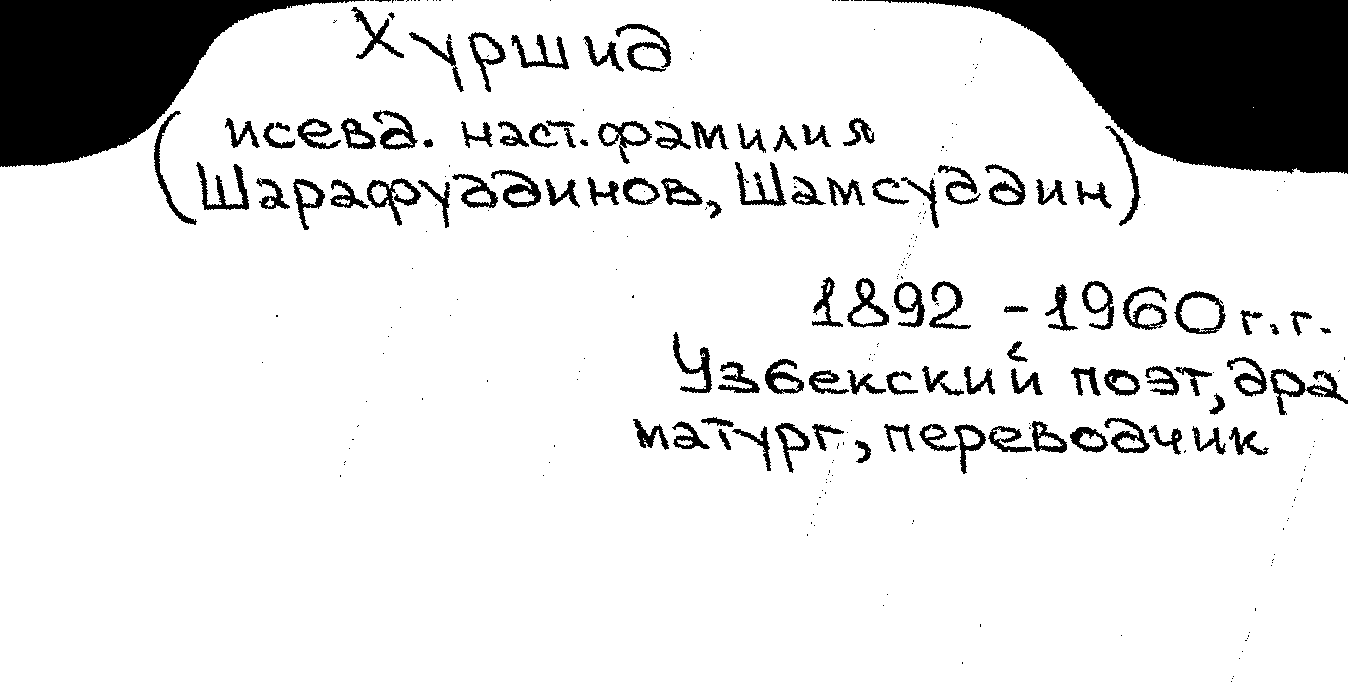 Хуршид
(исева. наст. фамилия
Шарафуддинов, Шамсуддин)
1892 - 1960 г.г.
Узбекский поэт, дра
матург, переводчик